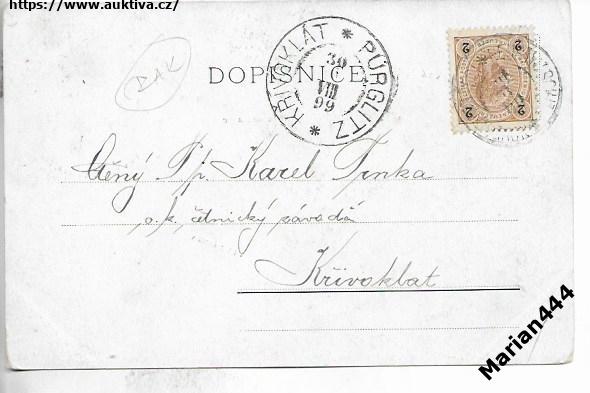 https://www.auktiva.cz/
DOPISNICE.
KŘIVOKLÁT * PÜRGLITZ *
30
VIII
99
2 2
2 2
Ctěný P. p. Karel Trnka
c. k. četnický závodčí
Křivoklat
Marian444